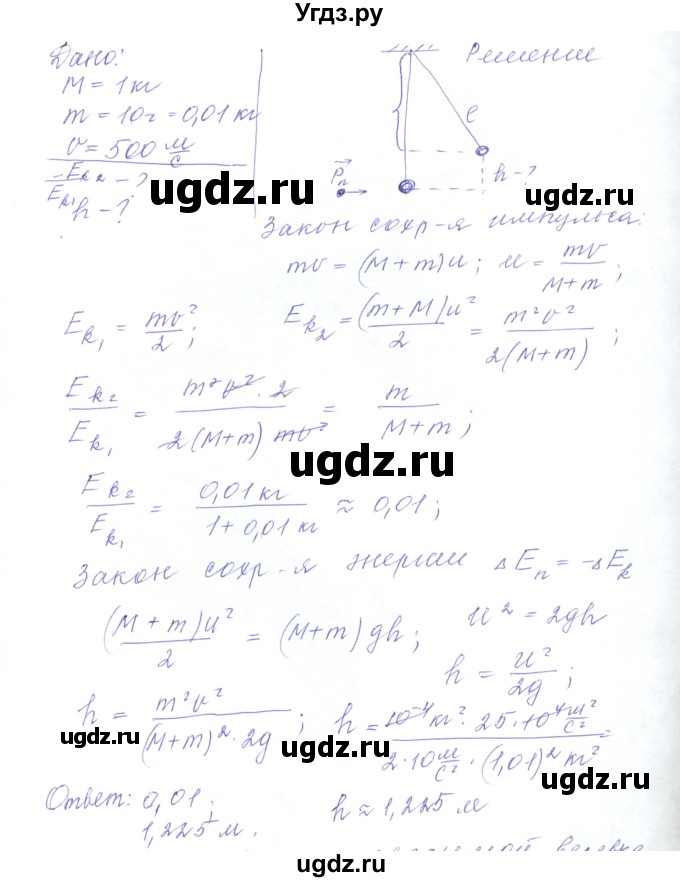 Угдз.ру
Дано:
M = 1 кг
m = 10 г = 0,01 кг
v = 500 м/с
Ek2/Ek1 - ?
h - ?
Решение
l
h - ?
Pп
ugdz.ru
ugdz.ru
Закон сохр-я импульса:
mv = (M+m)u; u = mv/(M+m);
Ek1 = mv²/2; Ek2 = (m+M)u²/2 = m²v²/2(M+m);
ugdz.ru
Ek2/Ek1 = m²v²·2/2(M+m)mv² = m/(M+m);
ugdz.ru
Ek2/Ek1 = 0,01 кг/(1+0,01 кг) ≈ 0,01;
Закон сохр-я энергии ΔEп = -ΔEk
(M+m)u²/2 = (M+m)gh; u² = 2gh
h = u²/2g;
h = m²v²/(M+m)²·2g; h = 10⁻⁴кг²·25·10⁴ м²/с²/2·10 м/с²·(1,01)²кг² =
ugdz.ru
ugdz.ru
ugdz.ru
Ответ: 0,01; h ≈ 1,225 м
1,225 м.
ugdz.ru